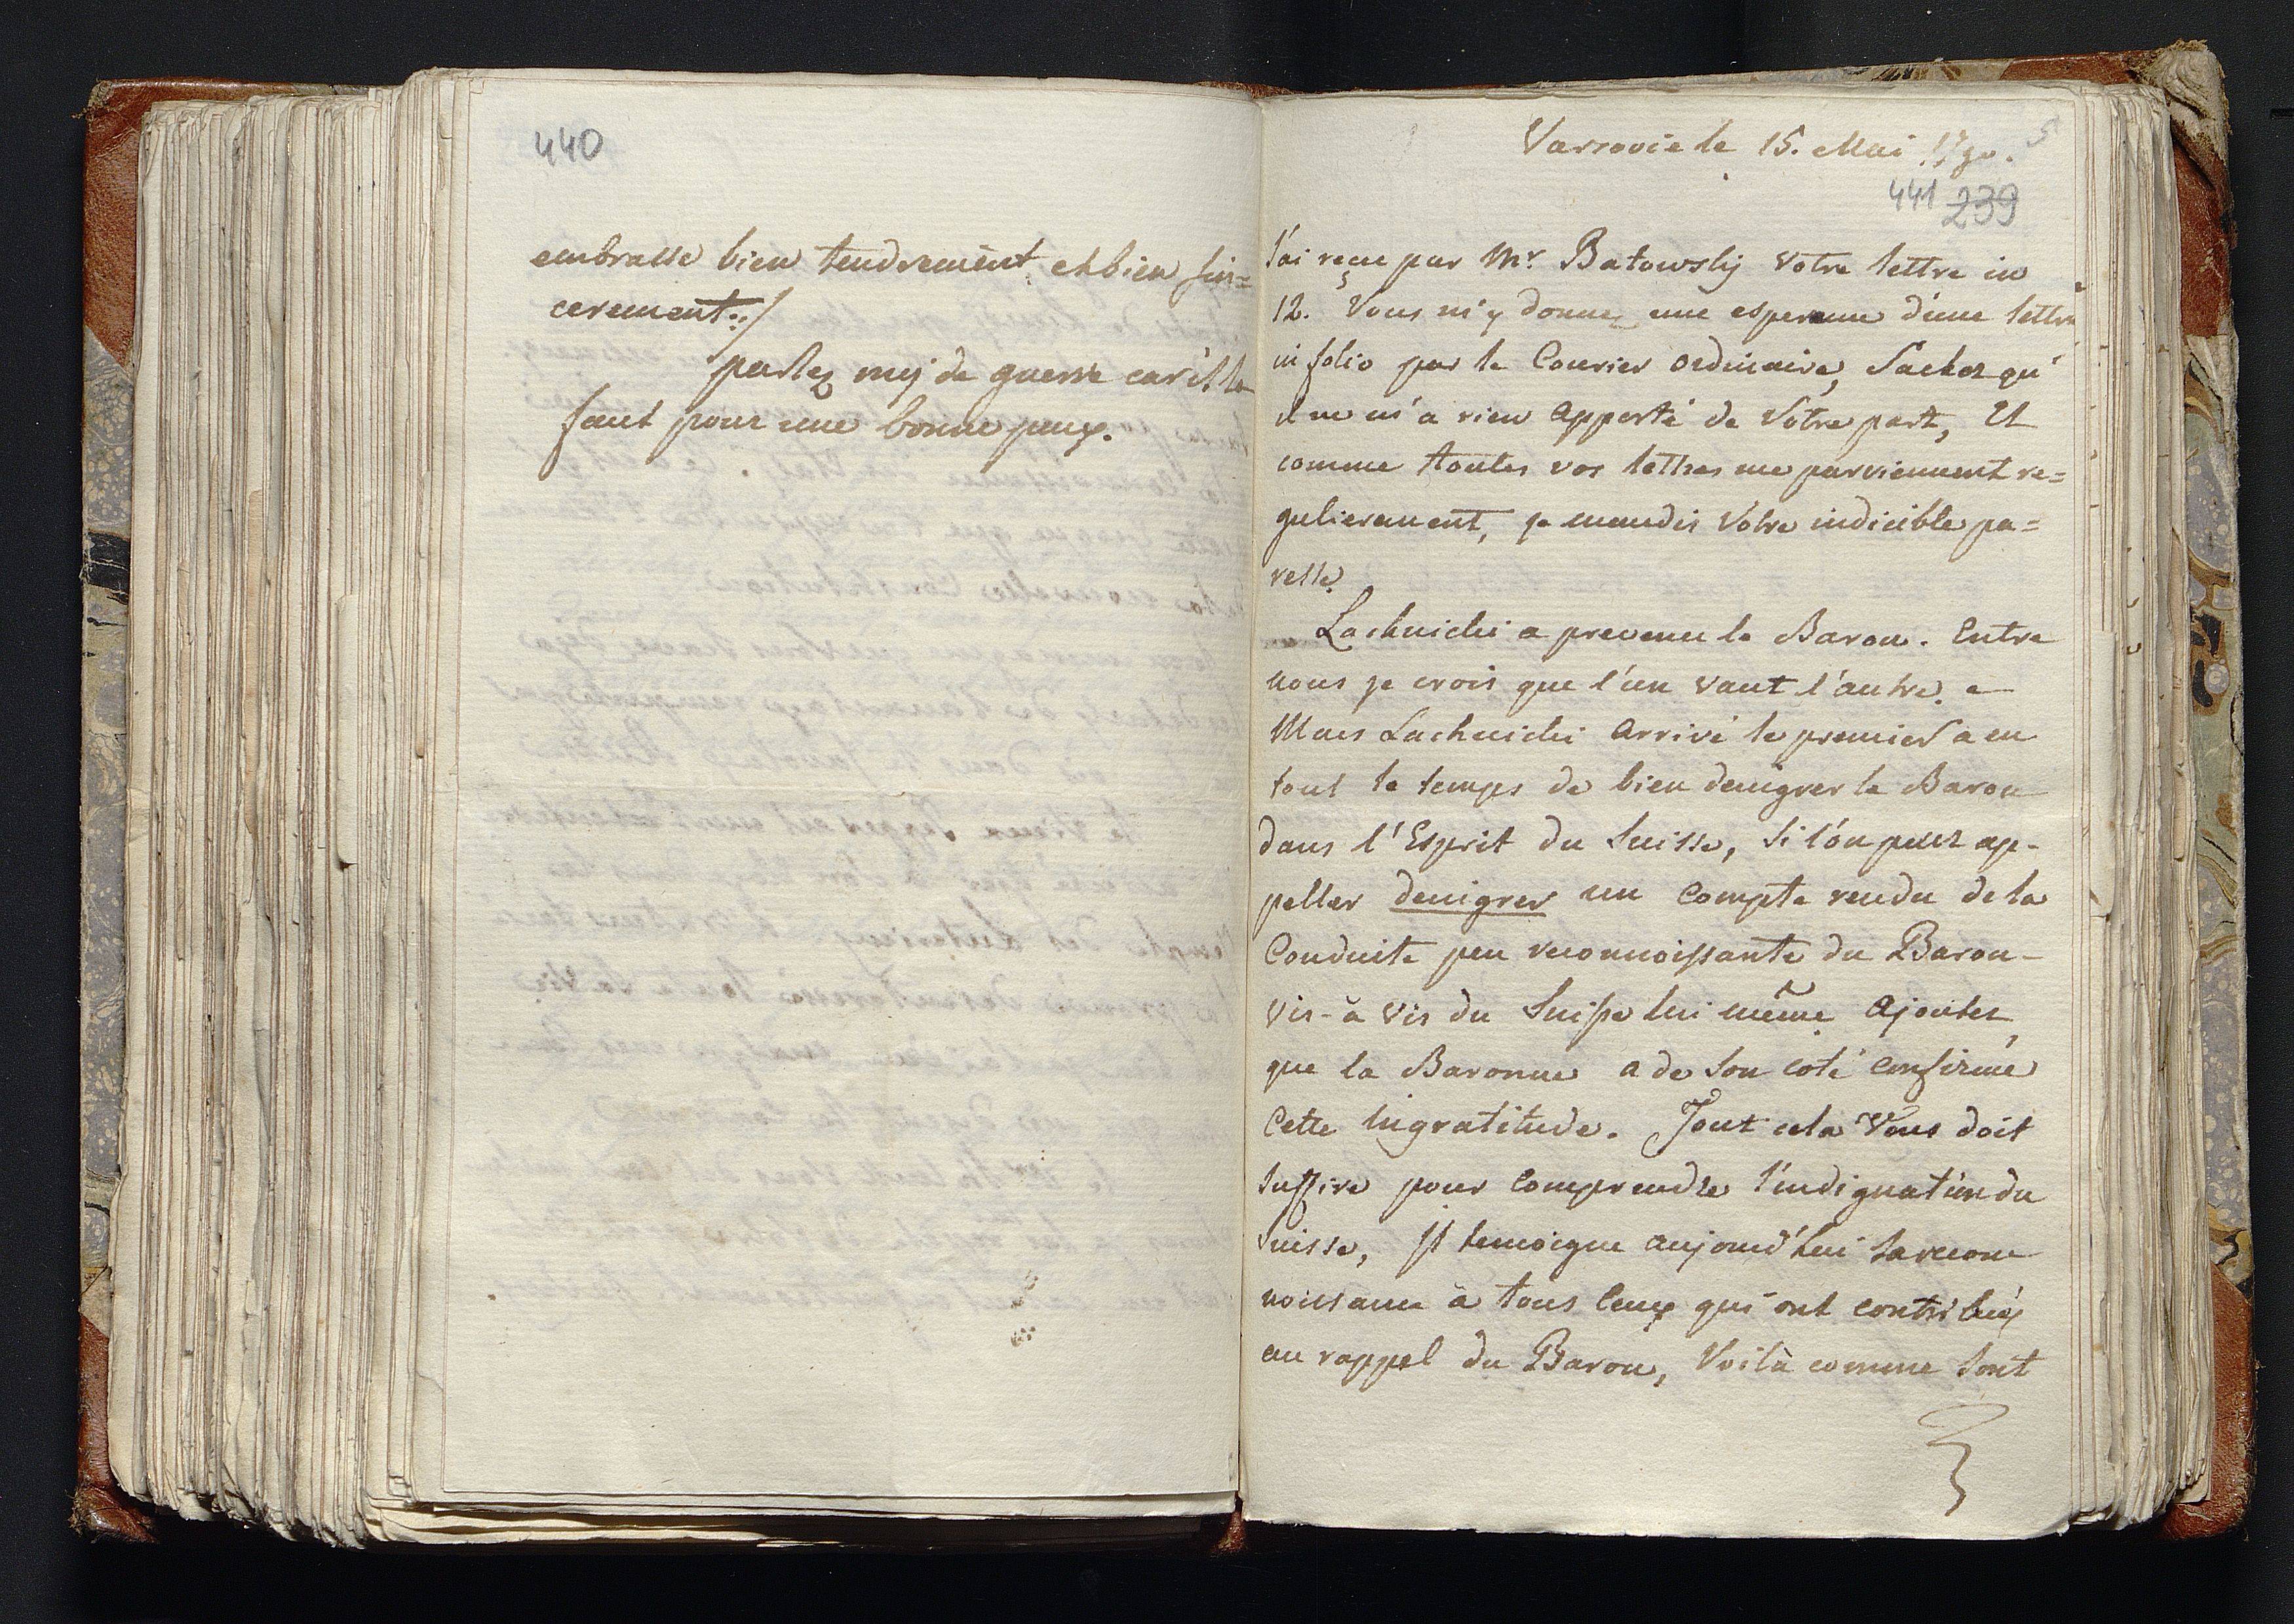 440
embrasse bien tendrement et bien sin=
cerement./
parlez moj de guerre car il la
faut pour une bonne paix.
Varsovie le 15. Mai 1790.
441 239
J'ai reçue par Mr. Batowskj Votre lettre in
12. Vous m'y donnez une esperence d'une lettre
in folio par le Courier ordinaire, Sachez qu'
il ne m'a rien apporté de Votre part, Et
comme toutes vos lettres me parviennent re=
gulierement, je maudis Votre indicible pa=
resse.
Lachnicki a prevenu le Baron. Entre
nous je crois que l'un vaut l'autre.
Mais Lachnicki arrivé le premier a eu
tout le temps de bien denigrer le Baron
dans l'Esprit du Suisse, Si l'on peut ap-
peller denigrer un Compte rendu de la
Conduite peu reconnoissante du Baron
vis-à vis du Suisse lui même ajoutez
que la Baronne a de Son coté confirmé
Cette Ingratitude. Tout cela Vous doit
Suffire pour comprendre l'indignation du
Suisse, Il temoigne aujourd'hui sa recon
noissance à tous ceux qui ont contribué
au rappel du Baron, Voilà comme Sont